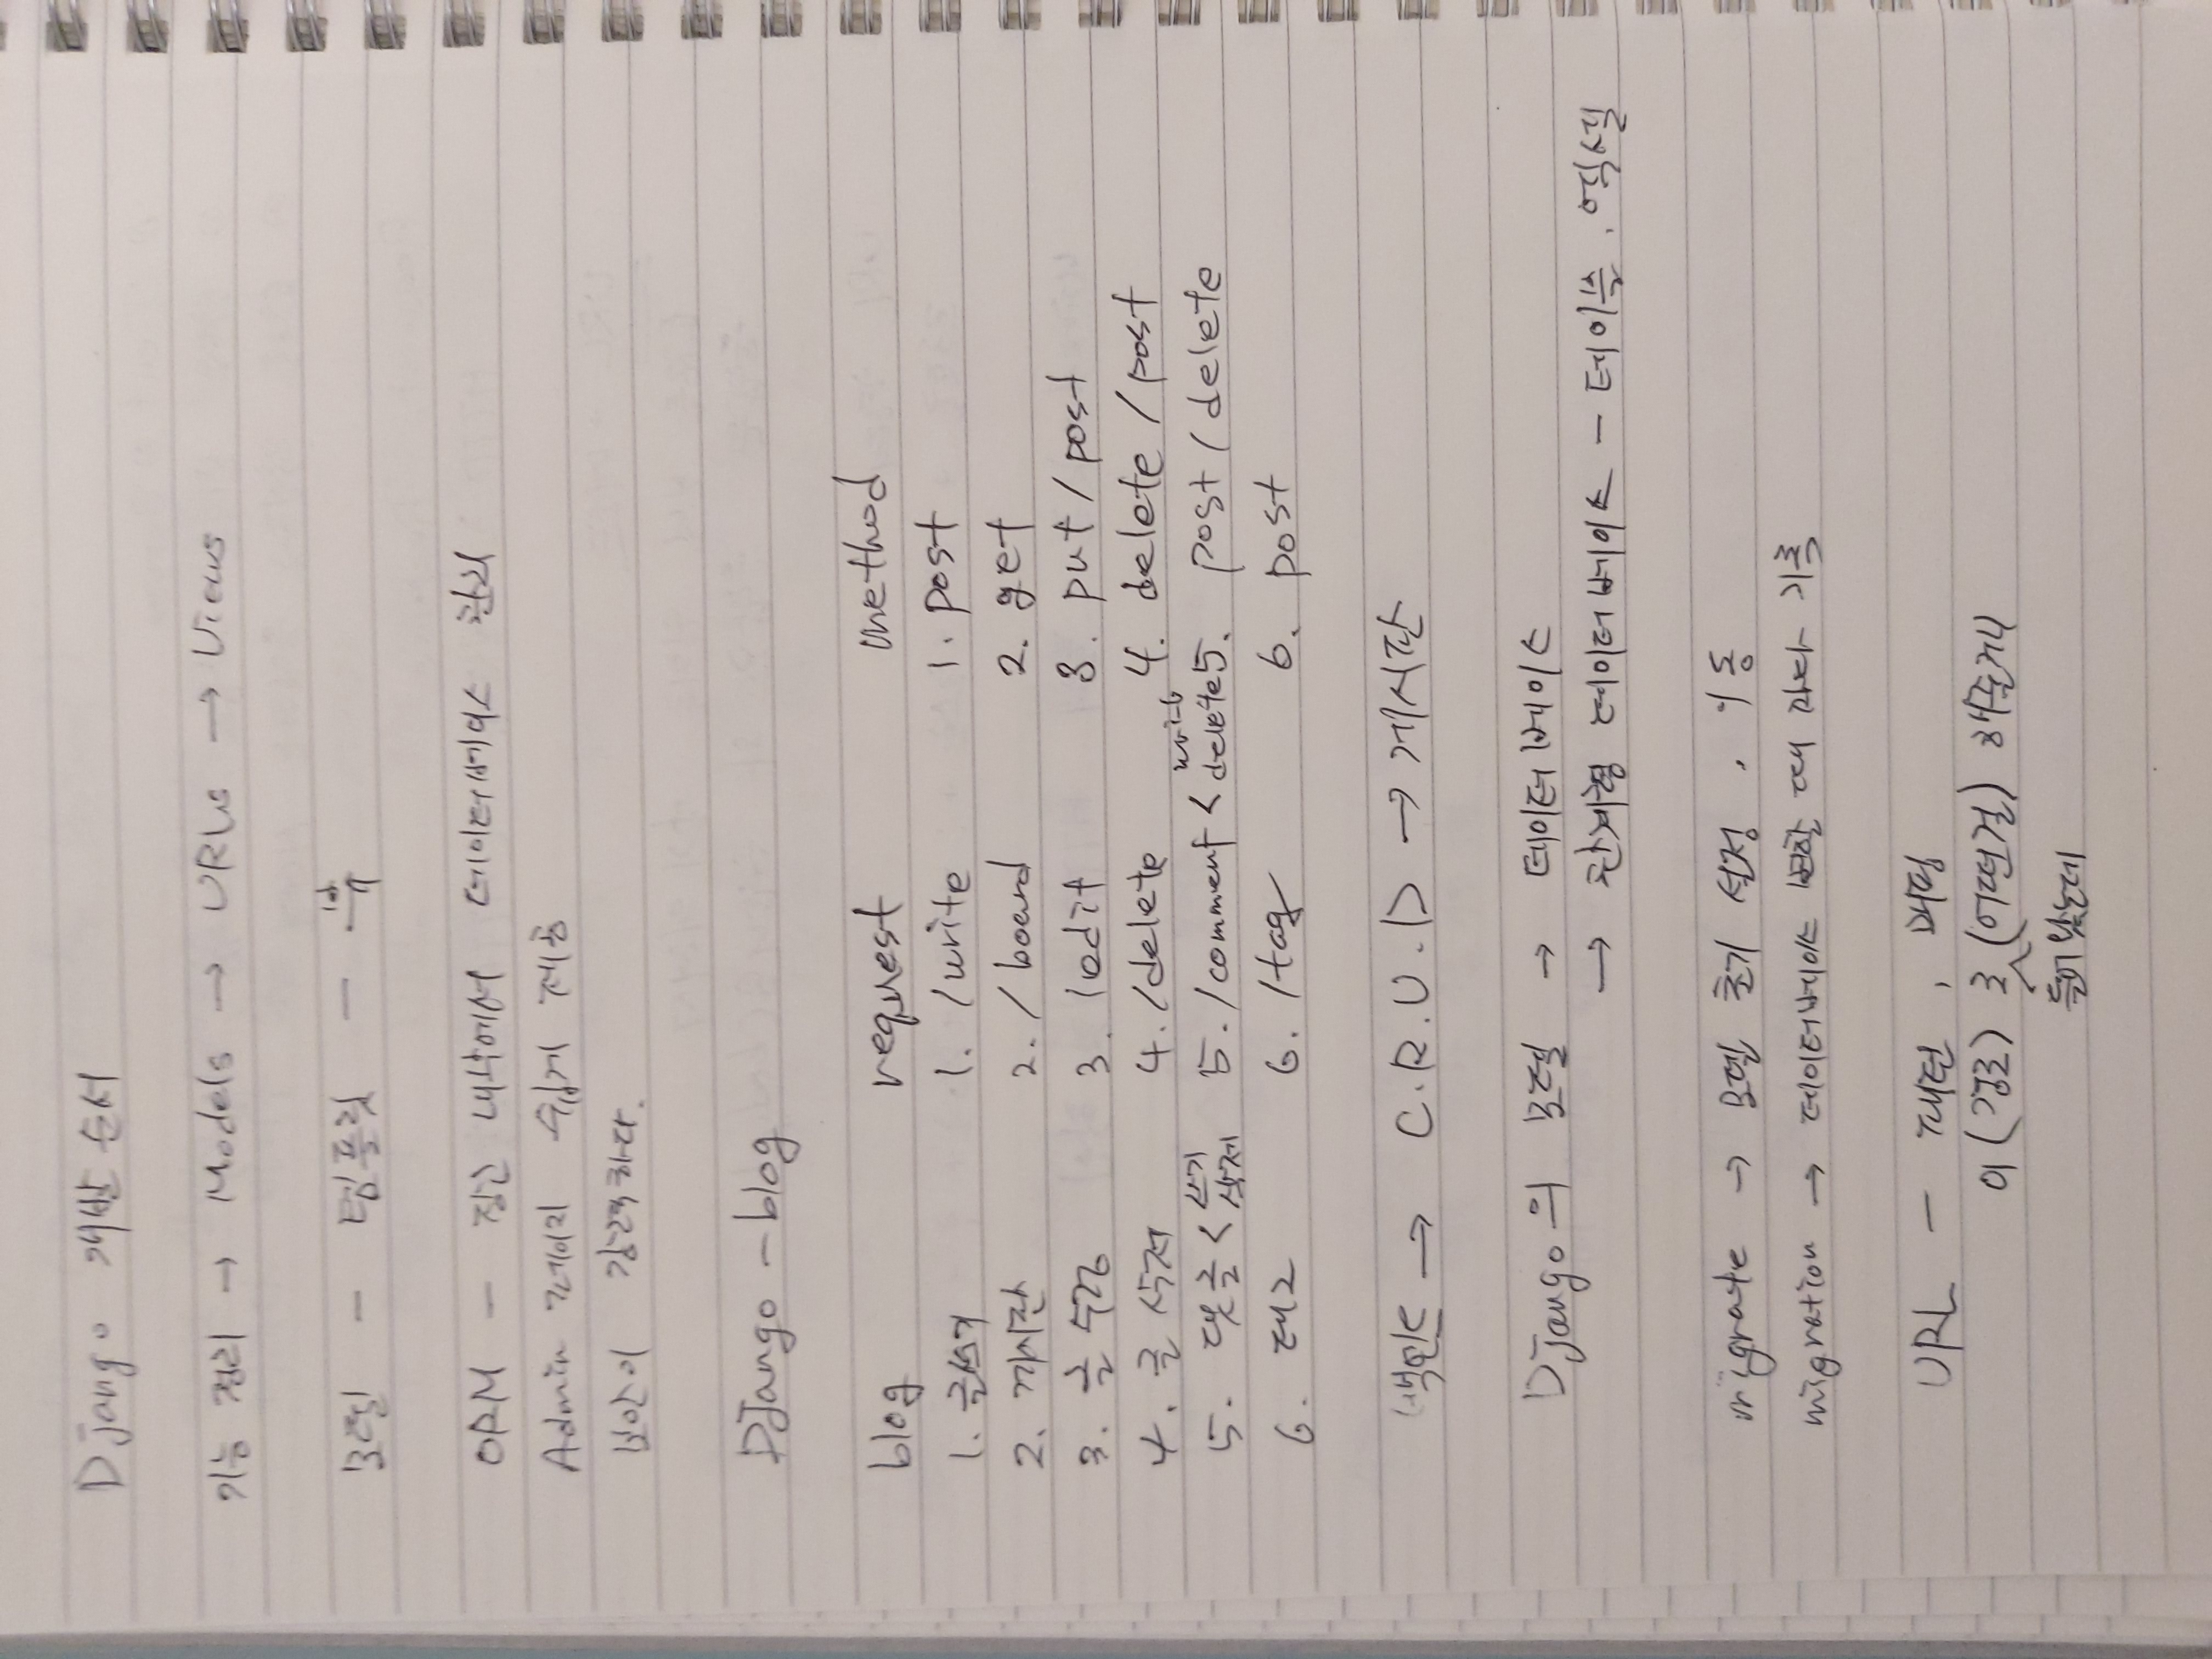 Django 개발 순서
기능 정리 → Models → URLs → Views
모델 - 템플릿 - 뷰
ORM - 장고 내부에서 데이터베이스 관리
Admin 페이지 쉽게 제공
보안이 강력하다.
Django - blog
blog request method
1. 글쓰기 1. /write 1. post
2. 게시판 2. /board 2. get
3. 글 수정 3. /edit 3. put / post
4. 글 삭제 4. /delete 4. delete / post
5. 댓글 < 쓰기 삭제 5. /comment < write delete 5. post / delete
6. 태그 6. /tag 6. post
백엔드 → C.R.U.D → 게시판
Django의 모델 → 데이터베이스
→ 관계형 데이터베이스 - 테이블, 엑셀
migrate → 모델 초기 설정, 이동
migration → 데이터베이스 변할 때마다 기록
URL - 패턴, 매핑
이 (경로) 로 (어떤걸) 해줄거니
들어왔는데